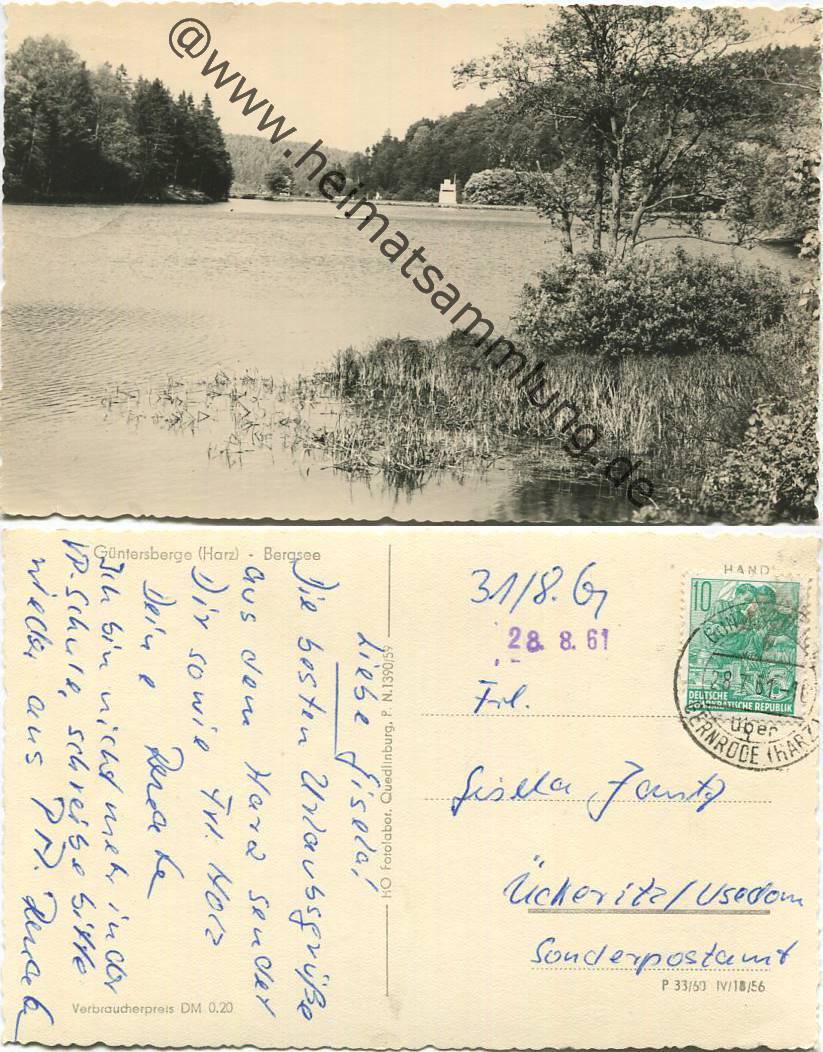 @www.heimatsammlung.de
Güntersberge (Harz) - Bergsee
Liebe Gisela!
Die besten Urlaubsgrüße
aus dem Harz sendet
Dir sowie Frl. Holz
Deine Renate
Ich bin nicht mehr in der
schreibe bitte
wieder aus Renate
Verbraucherpreis DM 0.20
HO Fotolabor, Quedlinburg, P. N. 1390/59
31/8. 61
28. 8. 61
HAND
10
DEUTSCHE
DEMOKRATISCHE REPUBLIK
über
BERNRODE (HARZ)
Frl.
Gisella
Ückeritz/Usedom
Sonderpostamt
P 33/60 IV/18/56